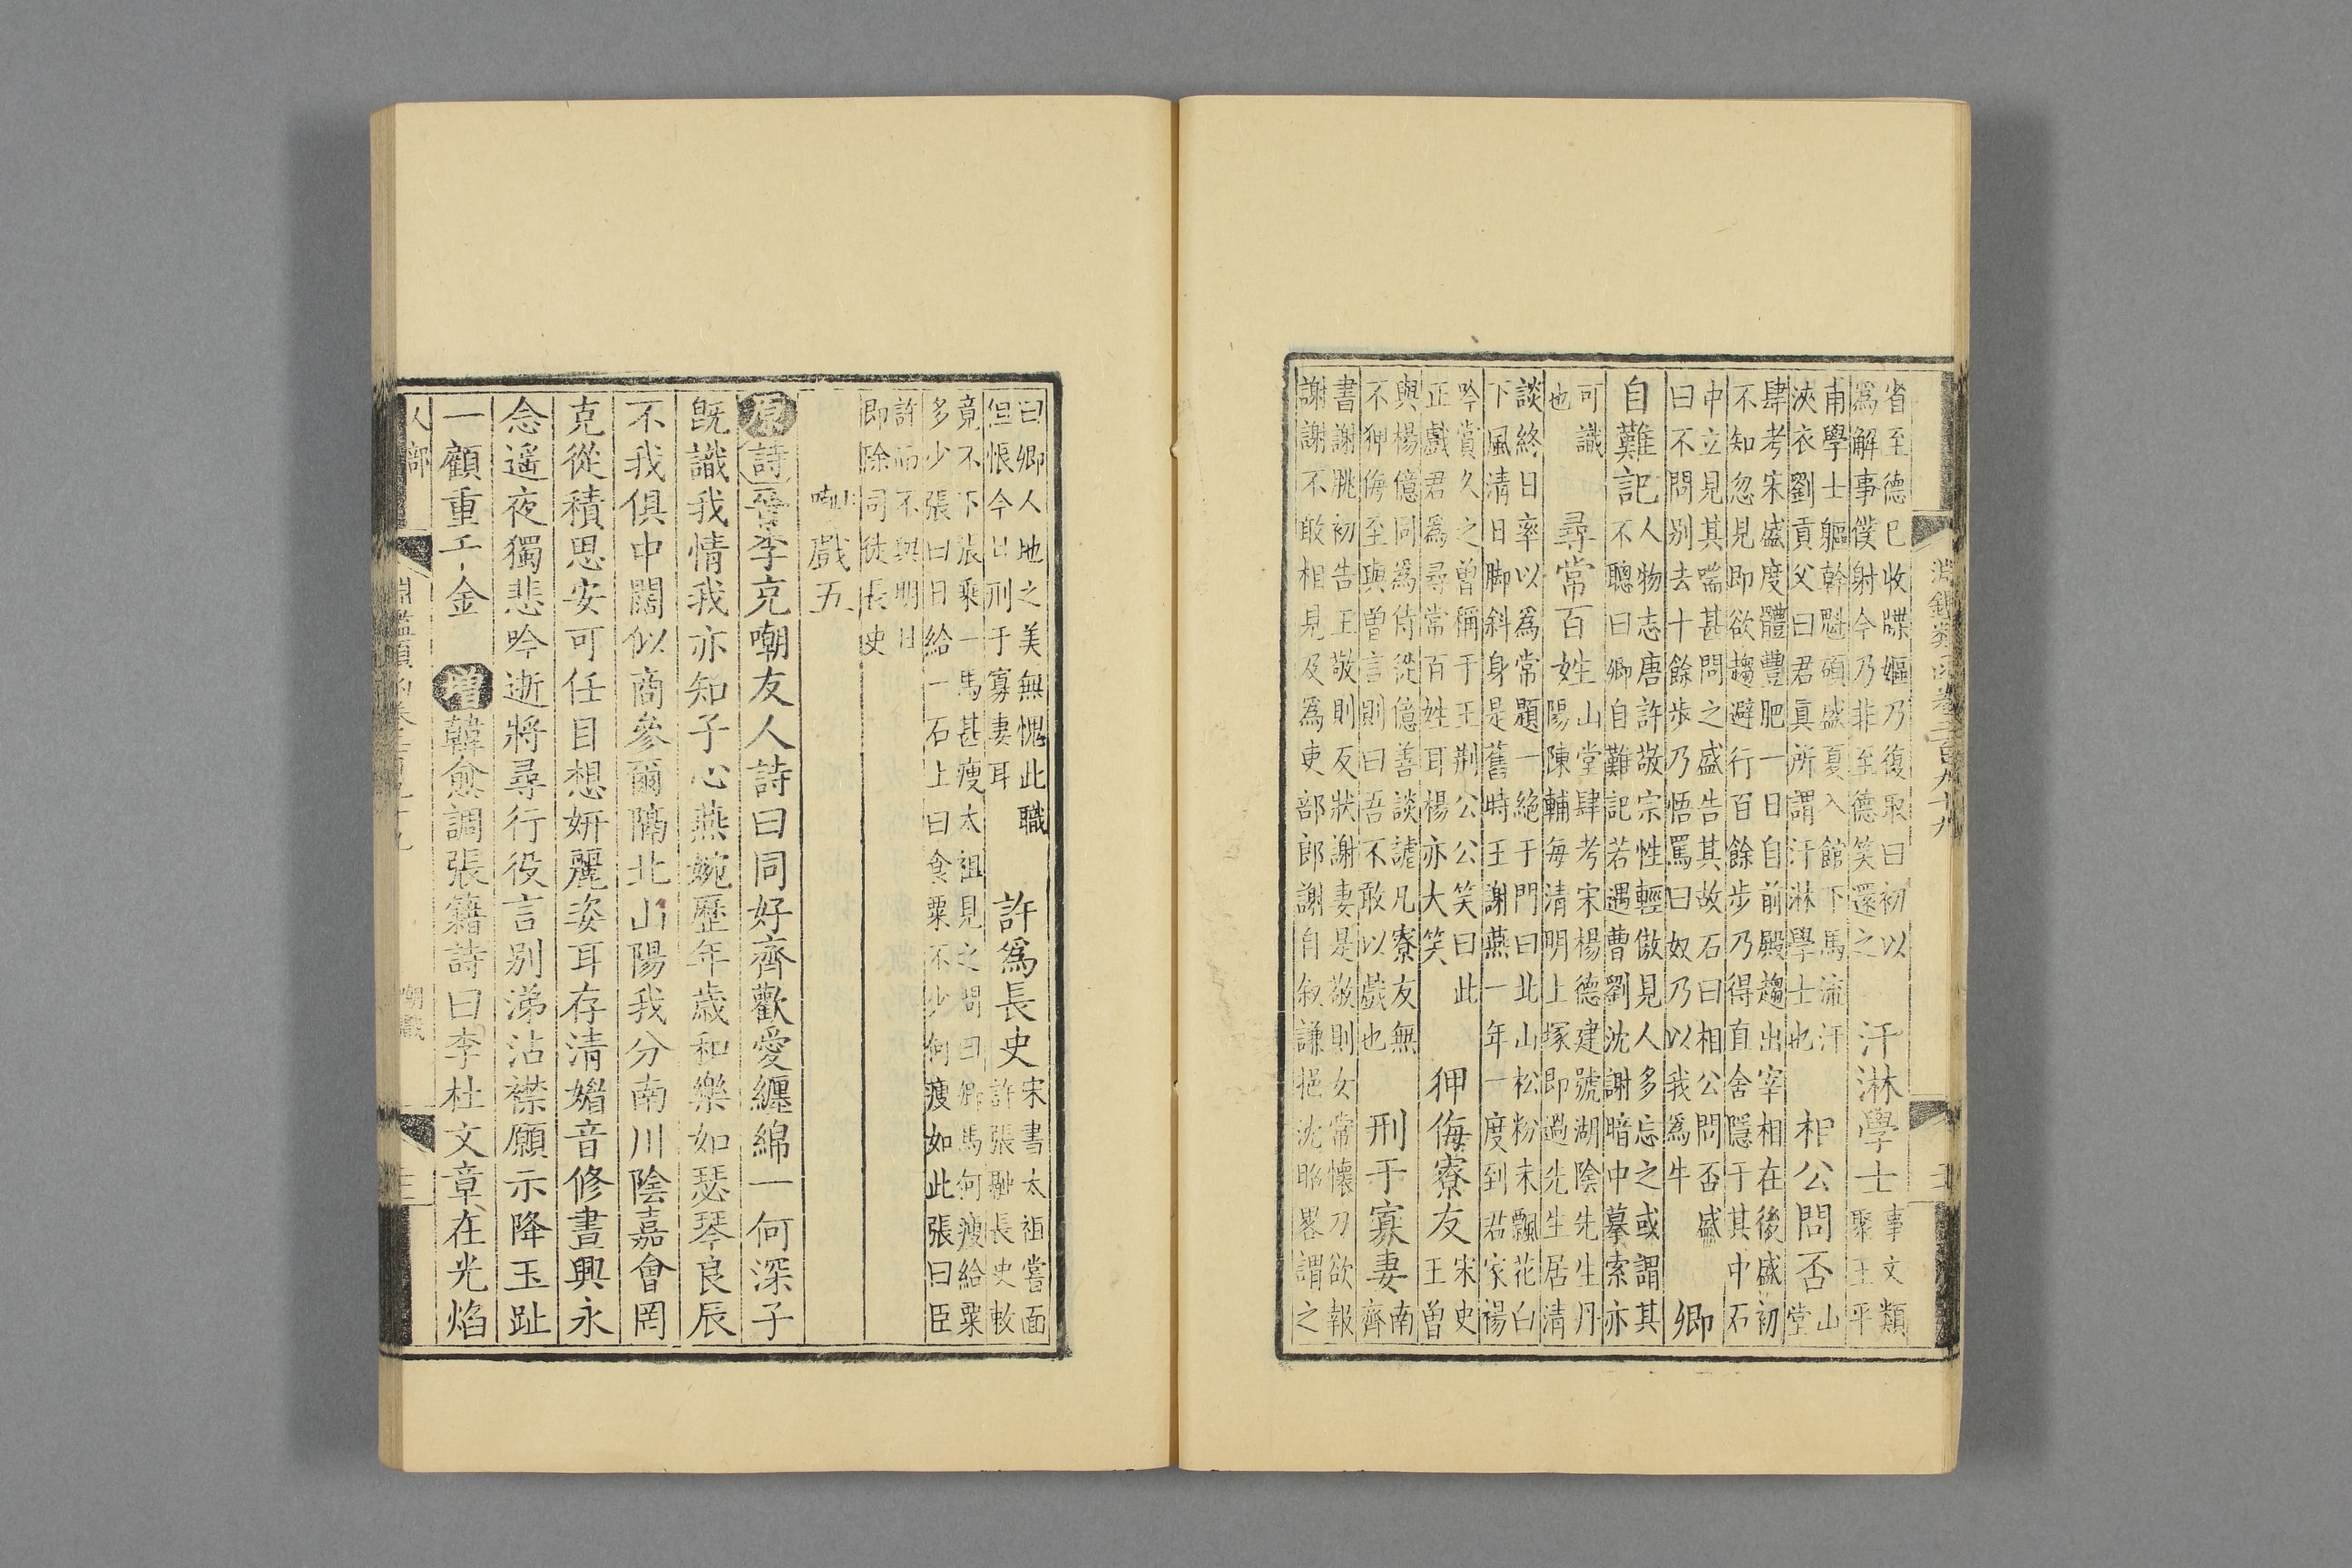 淵鑑類函卷三百九十九
省至德已收牒嫗乃復取曰初以
爲解事僕射今乃非至德笑還之
汗淋學士
事文類
聚王平
甫學士軀幹魁碩盛夏入館下馬流汗
浹衣劉貢父曰君眞所謂汗淋學士也
相公問否
山
堂
肆考宋盛度體豐肥一日自前殿趨出宰相在後盛初
不知忽見即欲趨避行百餘步乃得直舍隱于其中石
中立見其喘甚問之盛告其故石曰相公問否盛
曰不問别去十餘步乃悟罵曰奴乃以我爲牛
卿
自難記
人物志唐許敬宗性輕傲見人多忘之或謂其
不聰曰卿自難記若遇曹劉沈謝暗中摹索亦
可識
也
尋常百姓
山堂肆考宋楊德建號湖陰先生丹
陽陳輔每清明上塚即過先生居清
談終日率以爲常題一絶于門曰北山松粉未飄花白
下風清日脚斜身是舊時王謝燕一年一度到君家楊
吟賞久之曾稱于王荆公公笑曰此
正戲君爲尋常百姓耳楊亦大笑
狎侮寮友
宋史
王曾
與楊億同爲侍從億善談謔凡寮友無
不狎侮至與曾言則曰吾不敢以戲也
刑于寡妻
南
齊
書謝朓初告王敬則反狀謝妻是敬則女常懷刀欲報
謝謝不敢相見及爲吏部郎謝自叙謙挹沈昭畧謂之
曰卿人地之美無愧此職
但恨今日刑于寡妻耳
許爲長史
宋書太祖嘗面
許張融長史敕
竟不下張乘一馬甚瘦太祖見之問曰卿馬何瘦給粟
多少張曰日給一石上曰食粟不少何瘦如此張曰臣
許而不與明日
即除司徒長史
嘲戲五
原詩晉李充嘲友人詩曰同好齊歡愛纏綿一何深子
旣識我情我亦知子心燕婉歷年歲和樂如瑟琴良辰
不我俱中闊似商參爾隔北山陽我分南川陰嘉會罔
克從積思安可任目想妍麗姿耳存清媚音修晝興永
念遥夜獨悲吟逝將尋行役言別涕沾襟願示降玉趾
一顧重千金 增韓愈調張籍詩曰李杜文章在光焰
人部
淵鑑類函卷三百九十九
嘲戲